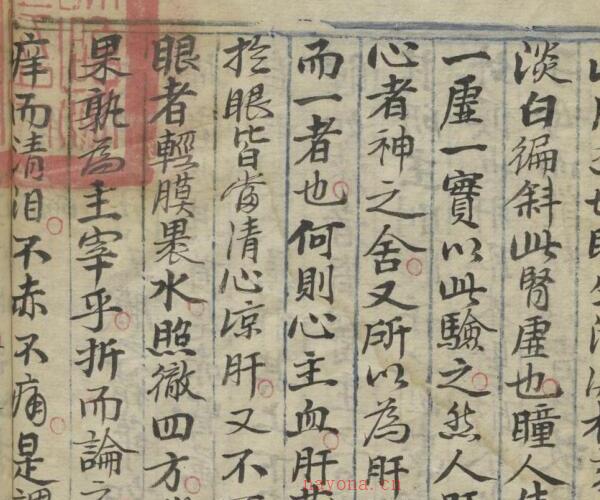 淡白徧斜此腎虛也瞳人
一虛一實以此驗之然人
心者神之舍又所以為肝
而一者也何則心主血肝
扵眼皆當清心涼肝又不
眼者輕膜裹水照徹四方
果孰為主宰乎折而論之
痒而清泪不赤不痛是謂
nayona.cn